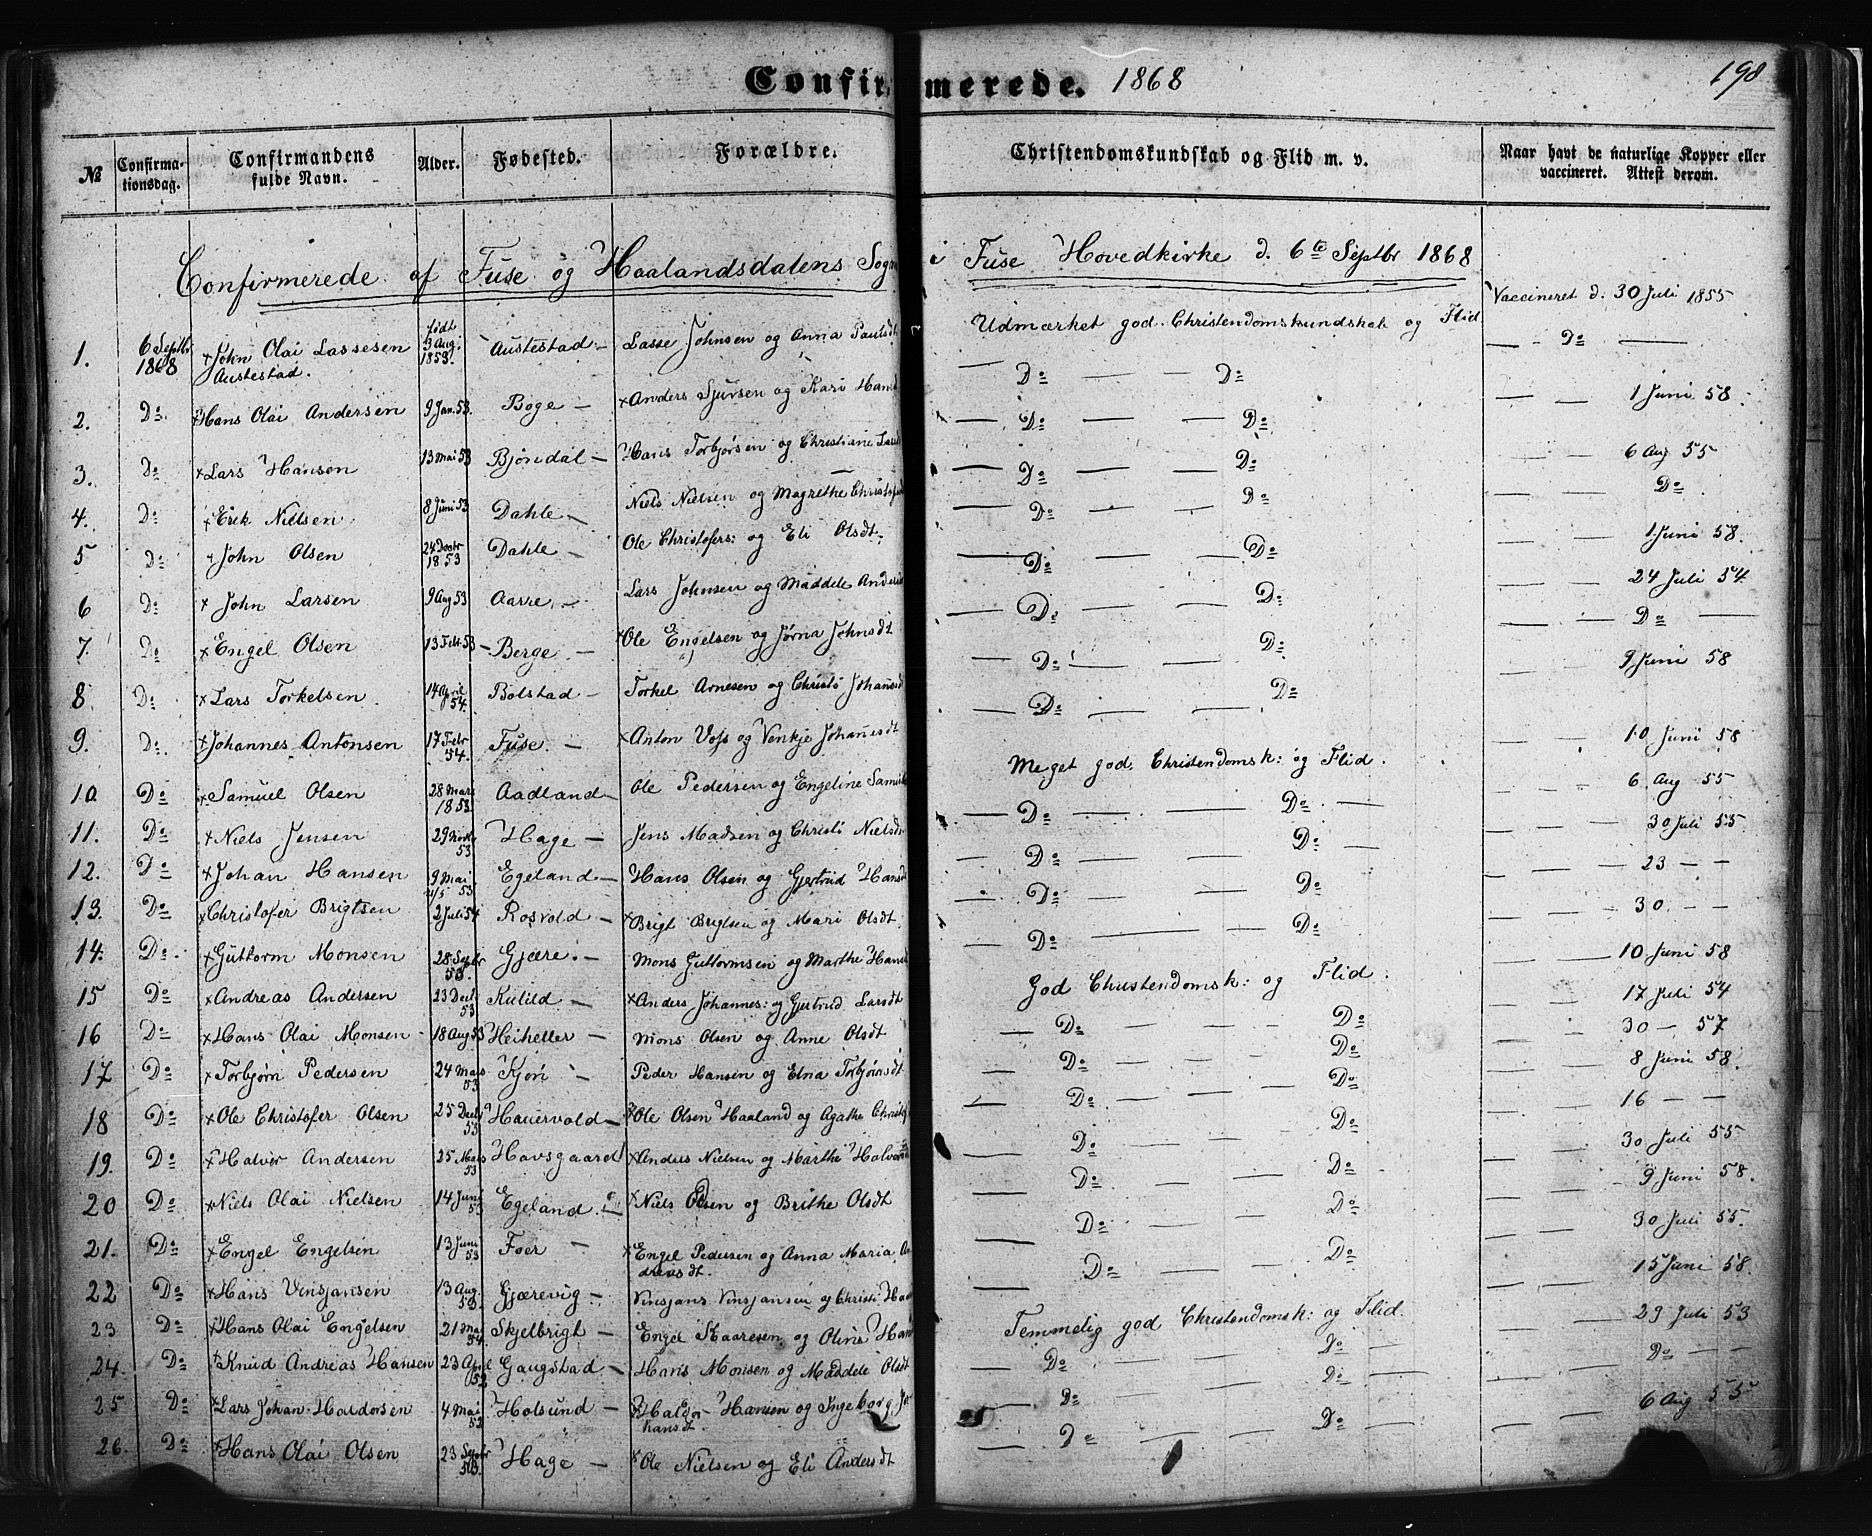 Confirmerede. 1868
198
№ Confirmationsdag. Confirmandens fulde Navn. Alder. Fødested. Forældre. Christendomskundskab og Flid m. v. Naar havt de naturlige Kopper eller vaccineret. Attest derom.
Confirmerede af Fuse og Haalandsdalens Sogne i Fuse Hovedkirke d. 6te Septbr 1868
1. 6 Septbr 1868 John Olai Lassesen Austestad. født 3 Aug. 1853. Austestad – Lasse Johnsen og Anna Paulsdt Udmærket god Christendomskundskab og Flid Vaccineret d. 30 Juli 1855
2. Do Hans Olai Andersen 9 Jan. 53. Boge – Anders Sjursen og Kari Hansd — Do — — Do — — Do —
3. Do Lars Hansen 13 Mai 53 Bjöndal – Hans Torbjørsen og Christiane Larsd — Do — — Do — — 1 Juni 58.
4. Do Erik Nielsen 8 Juni 53 Dahle – Niels Nielsen og Magrethe — Do — — Do — — 6 Aug 55
5 Do John Olsen 24 Decbr 1853 Dahle – Ole Christofers: og Eli Olsdt. — Do — — Do — — Do
6 Do John Larsen 9 Aug 53 Aarre – Lars Johnsen og Maddele — Do — — Do — — 1 Juni 58.
7. Do Engel Olsen 13 Febr 53 – Berge. – Ole Engelsen og Jørna Johnsdt — Do — — Do — — 24 Juli 54
8 Do Lars Torkelsen 14 April 54. Bolstad – Torkel Arnesen og Christi — Do — — Do — — Do —
9. Do Johannes Antonsen 17 Febr 54. Fuse. – Anton Voss og Venkje — Do — — Do — — 9 Juni 58
10. Do Samuel Olsen 28 Mars 1853 Aadland – Ole Pedersen og Engeline Meget god Christendomsk: og Flid. — 10 Juni 58
11. Do Niels Jensen 29 Novbr 53 Hage – Jens Madsen og Christi Nielsd — Do — — Do — — 6 Aug 55
12. Do Johan Hansen 9 Mai 53 Egeland – Hans Olsen og Gjertrud Hansd — Do — — Do — — 30 Juli 55
13. Do Christofer Brigtsen 2 Juli 54 Rosvold – Brigt Brigtsen og Mari Olsdt. — Do — — Do — — 23 – –
14. Do Guttorm Monsen 28 Septbr 53. Gjære. – Mons Guttormsen og Marthe — Do — — Do — — 30 – –
15 Do Andreas Andersen 23 Decbr 53 Kulild – Anders Johannes: og Gjertrud Larsdt God Christendomsk: og Flid. — 10 Juni 58
16 Do Hans Olai Monsen 18 Aug 53 Heiheller – Mons Olsen og Anne Olsdt — Do — — Do — — 17 Juli 54
17 Do Torbjørn Pedersen 24 Mars 53 – Peder Hansen og Elna Torbjørnsdt — Do — — Do — — 30 – 57
18 Do Ole Christofer Olsen 25 Decbr 53 Hauervold – Ole Olsen Haaland og Agathe — Do — — Do — — 8 Juni 58.
19. Do Halvor Andersen 25 Mars 53 Havsgaard Anders Nielsen og Marthe — Do — — Do — — 16 – –
20 Do Niels Olai Nielsen 14 Juni 53 Egeland. – Niels Olsen og Brithe Olsdt — Do — — Do — — 30 Juli 55
21. Do Engel Engelsen 13 Juni 53 Foer – Engel Pedersen og Anna Maria Andreasdt. — Do — — Do — — 9 Juni 58.
22 Do Hans Vinsjansen 13 Aug 53. Gjærevig – Vinsjans Vinsjansen og Christi — Do — — Do — — 30 Juli 55.
23 Do Hans Olai Engelsen 21 Mai 54 Skjelbrigt – Engel Haaresen og — 15 Juni 58.
24. Do Knud Andreas Hansen 23 April 52 Gaugstad – Hans Monsen og Maddele Olsdt Temmelig god Christendomsk: og Flid. — 29 Juli 53
25 Do Lars Johan Haldorsen 4 Mai 52 Holsund – Haldor Hansen og Ingeborg Johansdt. — Do — — Do — — Do – –
26. Do Hans Olai Olsen 23 Septbr Hage – Ole Nielsen og Eli Andersdt — Do — — Do — — 6 Aug 55
— Do — — Do